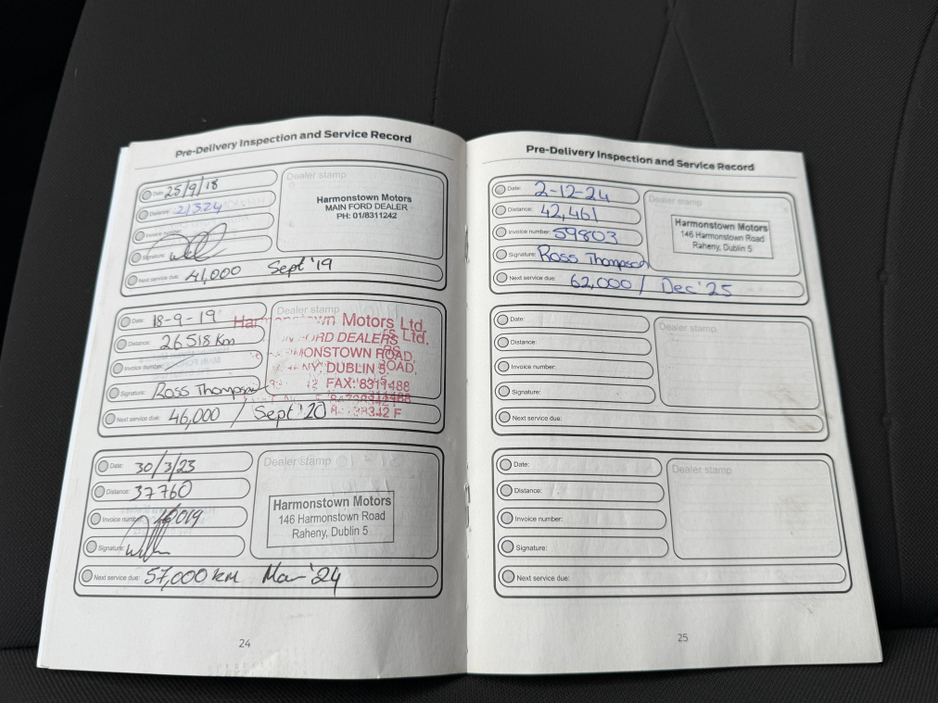 Pre-Delivery Inspection and Service Record
Date: 25/9/18
Distance: 21324
Invoice number:
Signature:
Dealer stamp
Harmonstown Motors
MAIN FORD DEALER
PH: 01/8311242
Next service due: 41,000 Sept '19
Date: 18-9-19
Distance: 26518 Km
Invoice number:
Signature: Ross Thompson
Dealer stamp
Harmonstown Motors Ltd.
FORD DEALERS
HARMONSTOWN ROAD,
DUBLIN 5.
FAX: 8311488
Next service due: 46,000 / Sept '20
Date: 30/3/23
Distance: 37760
Invoice number:
Signature:
Dealer stamp
Harmonstown Motors
146 Harmonstown Road
Raheny, Dublin 5
Next service due: 57,000 km Mar '24
24
Pre-Delivery Inspection and Service Record
Date: 2-12-24
Distance: 42,461
Invoice number: 59803
Signature: Ross Thompson
Dealer stamp
Harmonstown Motors
146 Harmonstown Road
Raheny, Dublin 5
Next service due: 62,000 / Dec '25
Date:
Distance:
Invoice number:
Signature:
Dealer stamp
Next service due:
Date:
Distance:
Invoice number:
Signature:
Dealer stamp
Next service due:
25